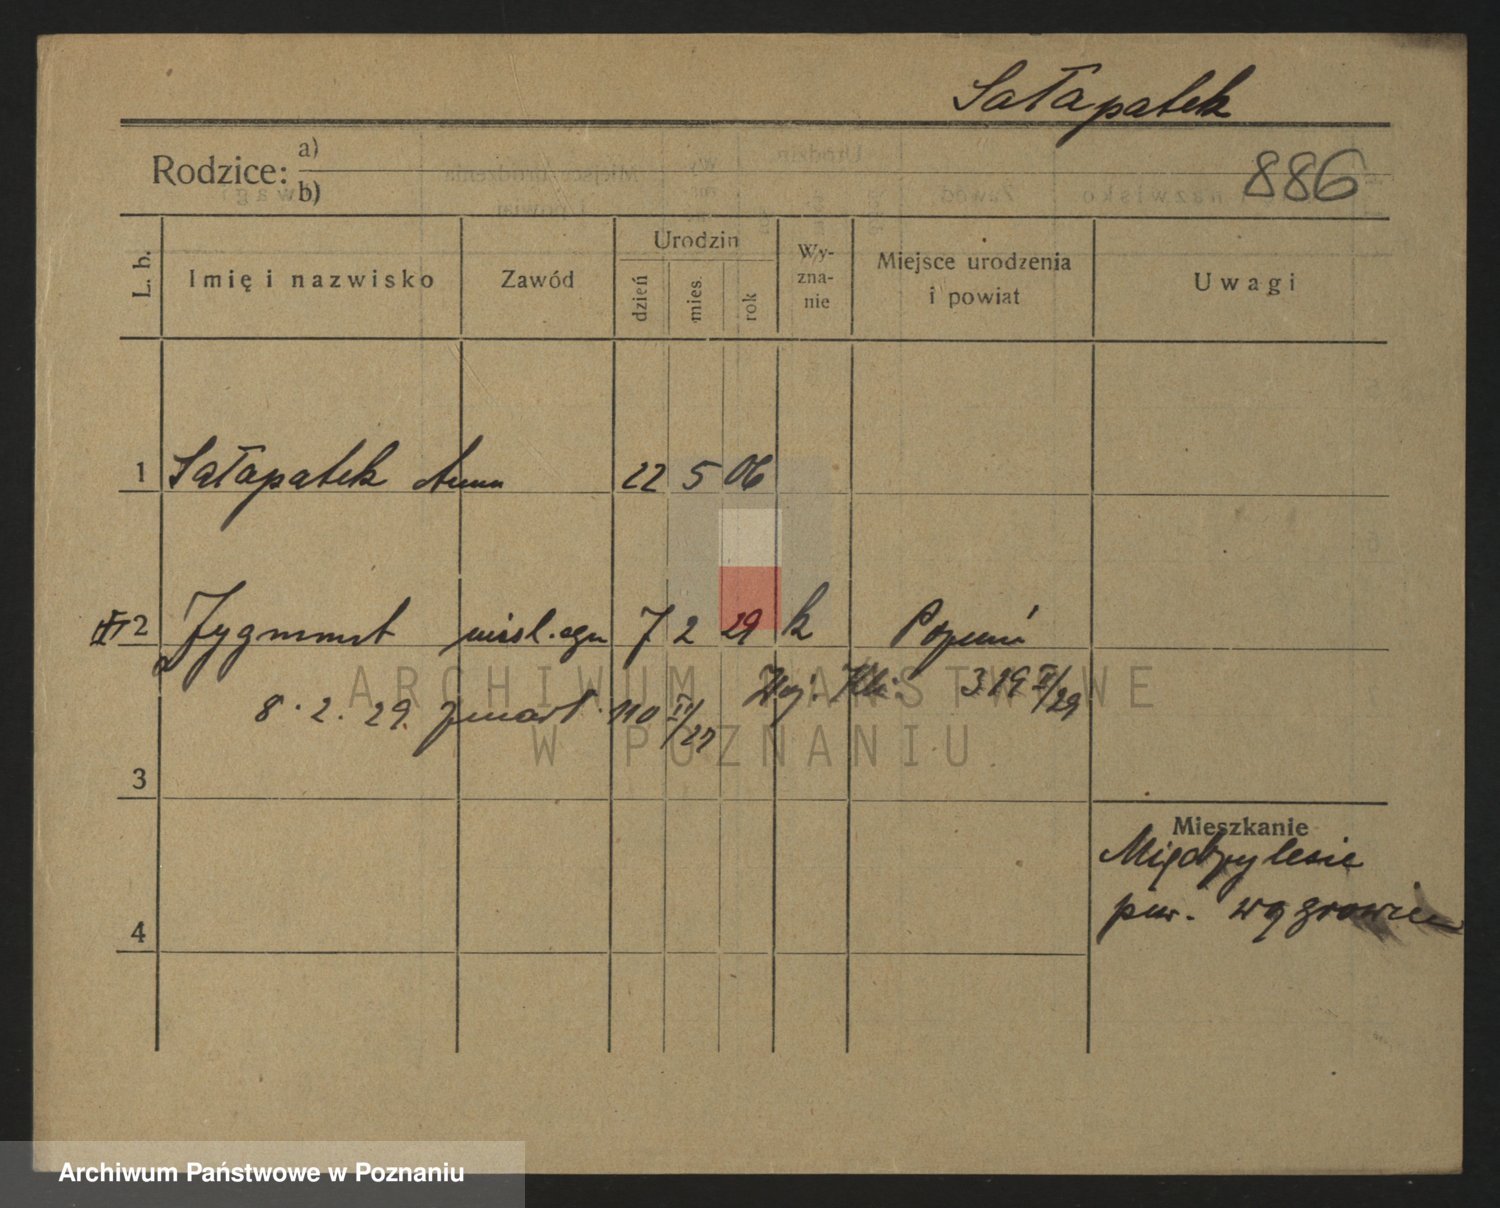 Sałapatek
Rodzice: a)
b)
886
L. b.
Imię i nazwisko
Zawód
Urodzin
dzień
mies.
rok
Wy-
zna-
nie
Miejsce urodzenia
i powiat
Uwagi
1 Sałapatek Anna 22 5 06
2 Zygmunt 7 2 29 k Poznań
319 II/29
8. 2. 29. zmarł 110 II/29
3
Mieszkanie
Międzylesie
pow. wągrowiec
4
ARCHIWUM PAŃSTWOWE
W POZNANIU
Archiwum Państwowe w Poznaniu